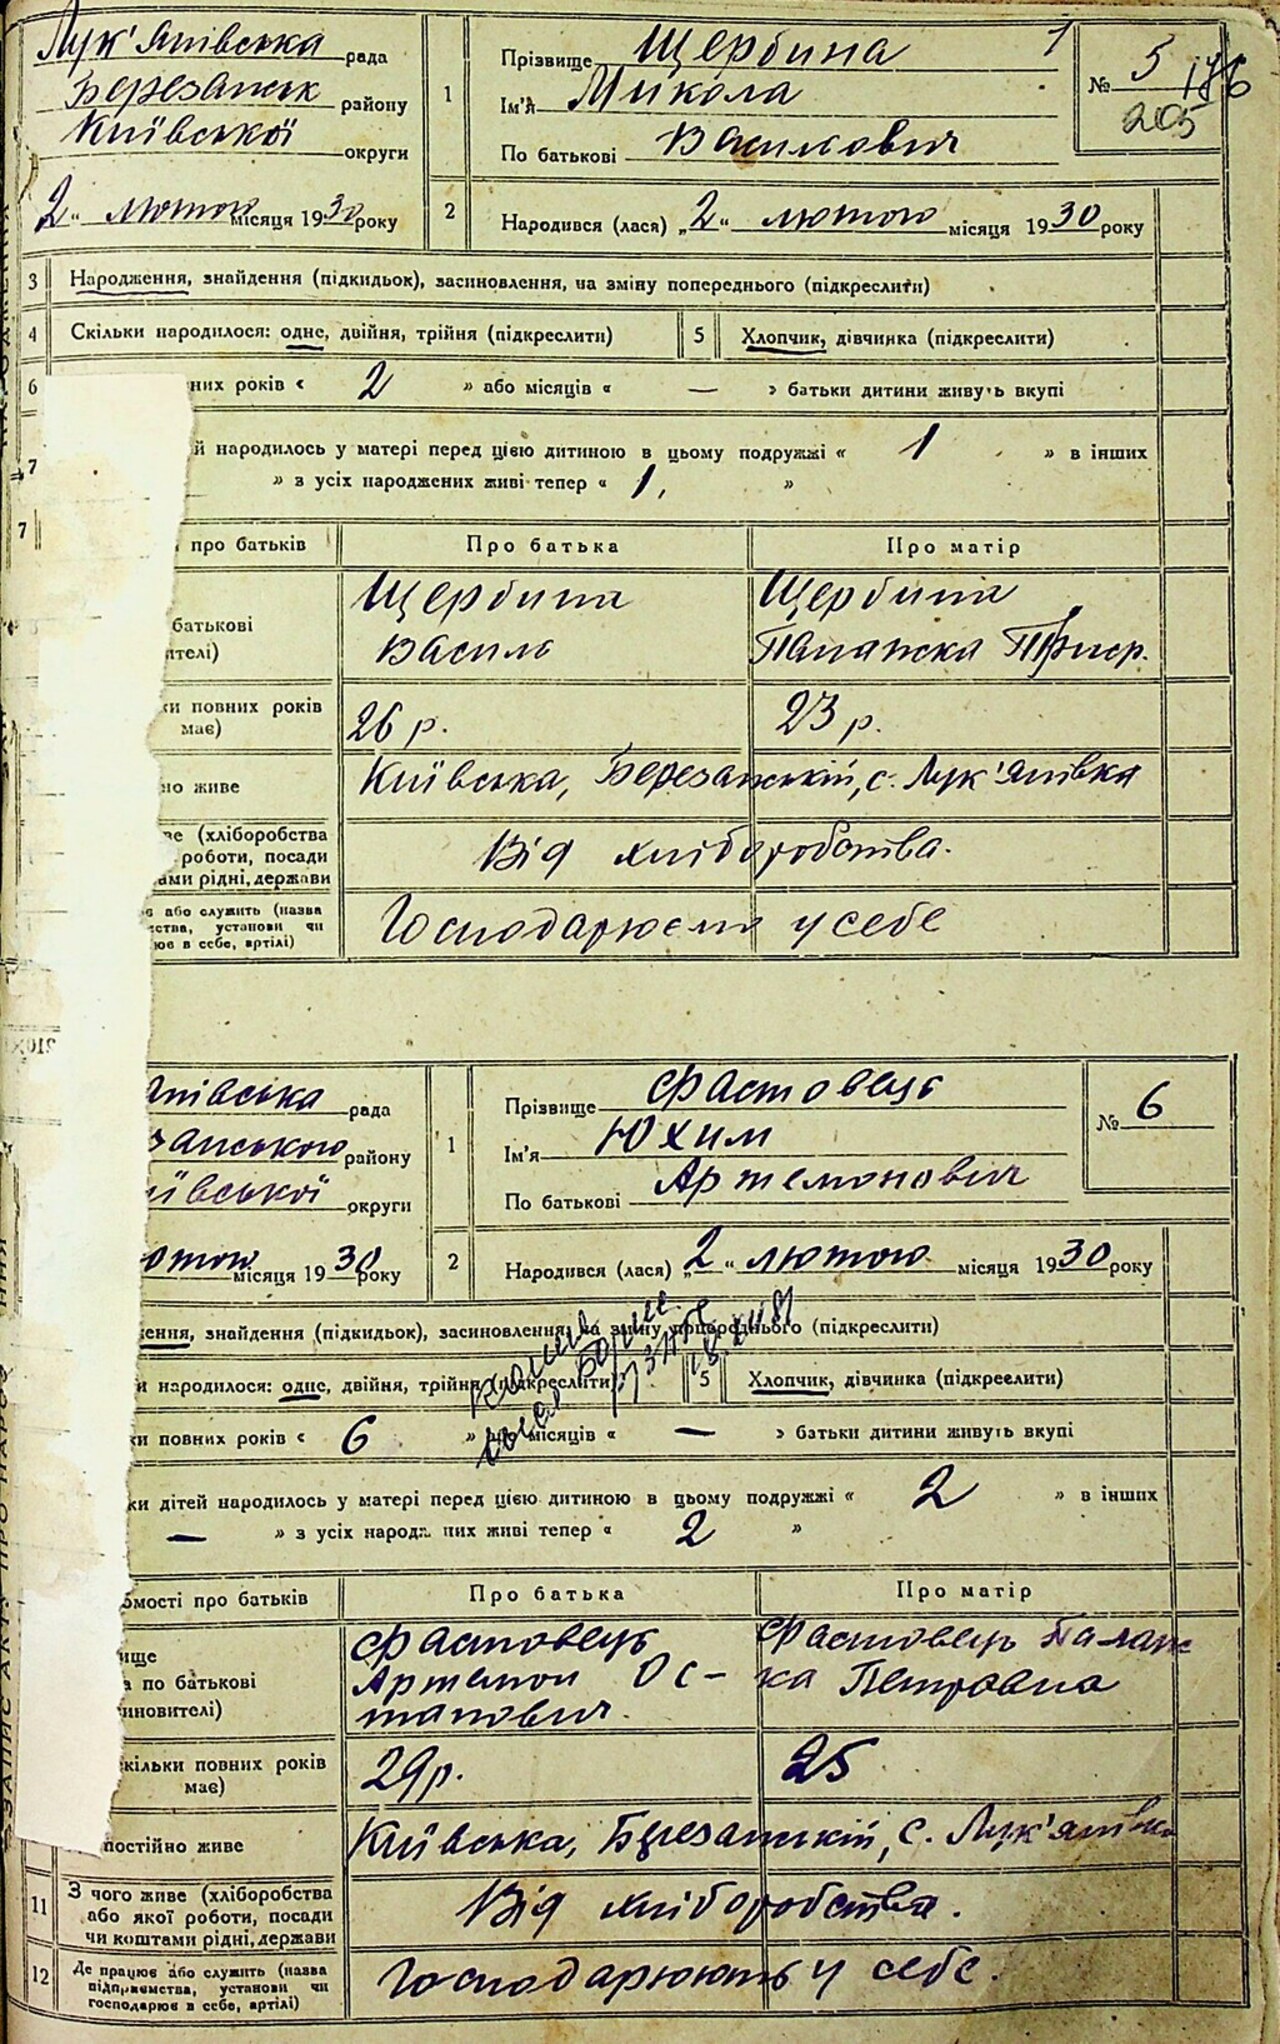 Лук'янівська рада
Березанськ району
Київської округи
2 " лютого місяця 1930 року
1
Прізвище Щербина
Ім'я Микола
По батькові Васильович
№ 5
186
205
2 Народився (лася) „2" лютого місяця 1930 року
3 Народження, знайдення (підкидьок), засиновлення, на зміну попереднього (підкреслити)
4 Скільки народилося: одне, двійня, трійня (підкреслити) 5 Хлопчик, дівчинка (підкреслити)
6 них років « 2 » або місяців « — » батьки дитини живуть вкупі
7 й народилось у матері перед цією дитиною в цьому подружжі « 1 » в інших
» з усіх народжених живі тепер « 1, »
7 про батьків Про батька Про матір
Щербина Щербина
батькові
ителі) Василь
ки повних років
має) 26 р. 23 р.
но живе Київська, Березанській, с. Лук'янівка
ве (хліборобства
роботи, посади Від хліборобства.
ами рідні, держави
є або служить (назва
ства, установи чи Господарюєть у себе
ює в себе, артілі)
янівська рада
занського району
ївської округи
ютого місяця 1930 року
1
Прізвище Фастовець
Ім'я Юхим
По батькові Артемонович
№ 6
2 Народився (лася) „2" лютого місяця 1930 року
ення, знайдення (підкидьок), засиновлення, на зміну попереднього (підкреслити)
и народилося: одне, двійня, трійня (підкреслити) 5 Хлопчик, дівчинка (підкреслити)
ки повних років « 6 » або місяців « — » батьки дитини живуть вкупі
ки дітей народилось у матері перед цією дитиною в цьому подружжі « 2 » в інших
— » з усіх народжених живі тепер « 2 »
омості про батьків Про батька Про матір
ище Фастовець Фастовець Палаж
а по батькові Артемон Ос- ка Петровна
иновителі) тапович.
скільки повних років
має) 29 р. 25
постійно живе Київська, Березанській, с. Лук'янівка
11 З чого живе (хліборобства
або якої роботи, посади Від хліборобства.
чи коштами рідні, держави
12 Де працює або служить (назва
підприємства, установи чи Господарюють у себе.
господарює в себе, артілі)